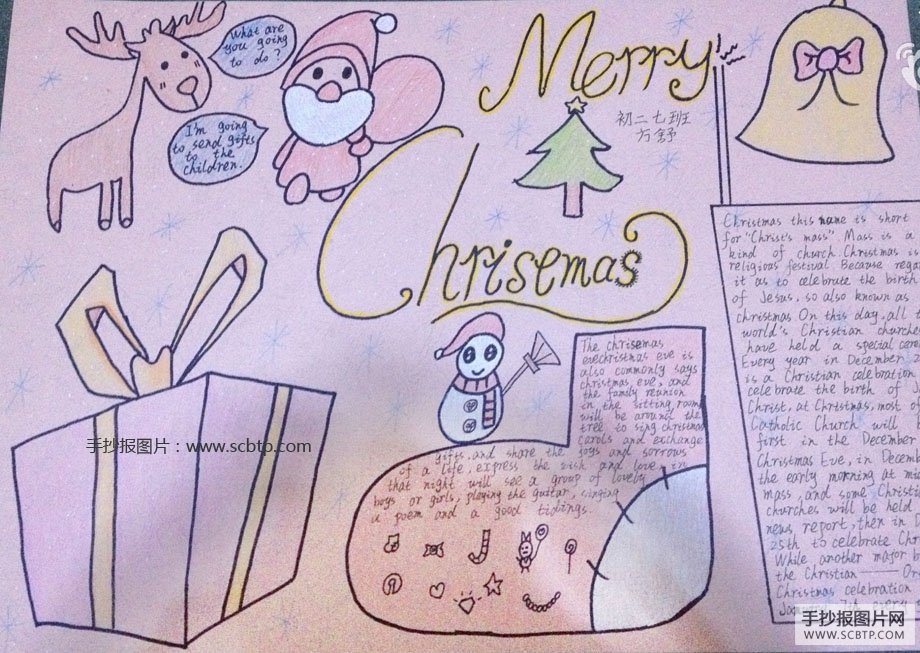 What are
you going
to do?
I'm going
to send gifts
to the
children.
Merry
初二七班
方舒
Chrisemas
手抄报图片：www.scbtp.com
The chrisemas
evechristmas eve is
also commonly says
christmas eve, and
the family reunion
in the sitting room
will be around the
tree to sing christmas
carols and exchange
gifts, and share the joys and sorrows
of a life, express the wish and love in
that night will see a group of lovely
boys or girls, playing the guitar, singing
a poem and a good tidings.
Christmas this name is short
for "Christ's mass". Mass is a
kind of church. Christmas is
religious festival. Because rega
it as to celebrate the birth
of Jesus, so also known as
christmas. On this day, all t
world's Christian churche
have held a special cere
Every year in December
is a Christian celebration
celebrate the birth of
Christ, at Christmas, most of
Catholic Church will b
first in the December
Christmas Eve, in Decemb
the early morning at mi
mass, and some Christi
churches will be held
news report, then in
25th to celebrate Chr
While another major b
the Christian —— Or
Christmas celebration
手抄报图片网
WWW.SCBTP.COM